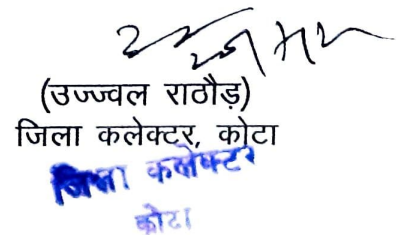 (उज्ज्वल राठौड़)
जिला कलेक्टर, कोटा
जिला कलेक्टर
कोटा